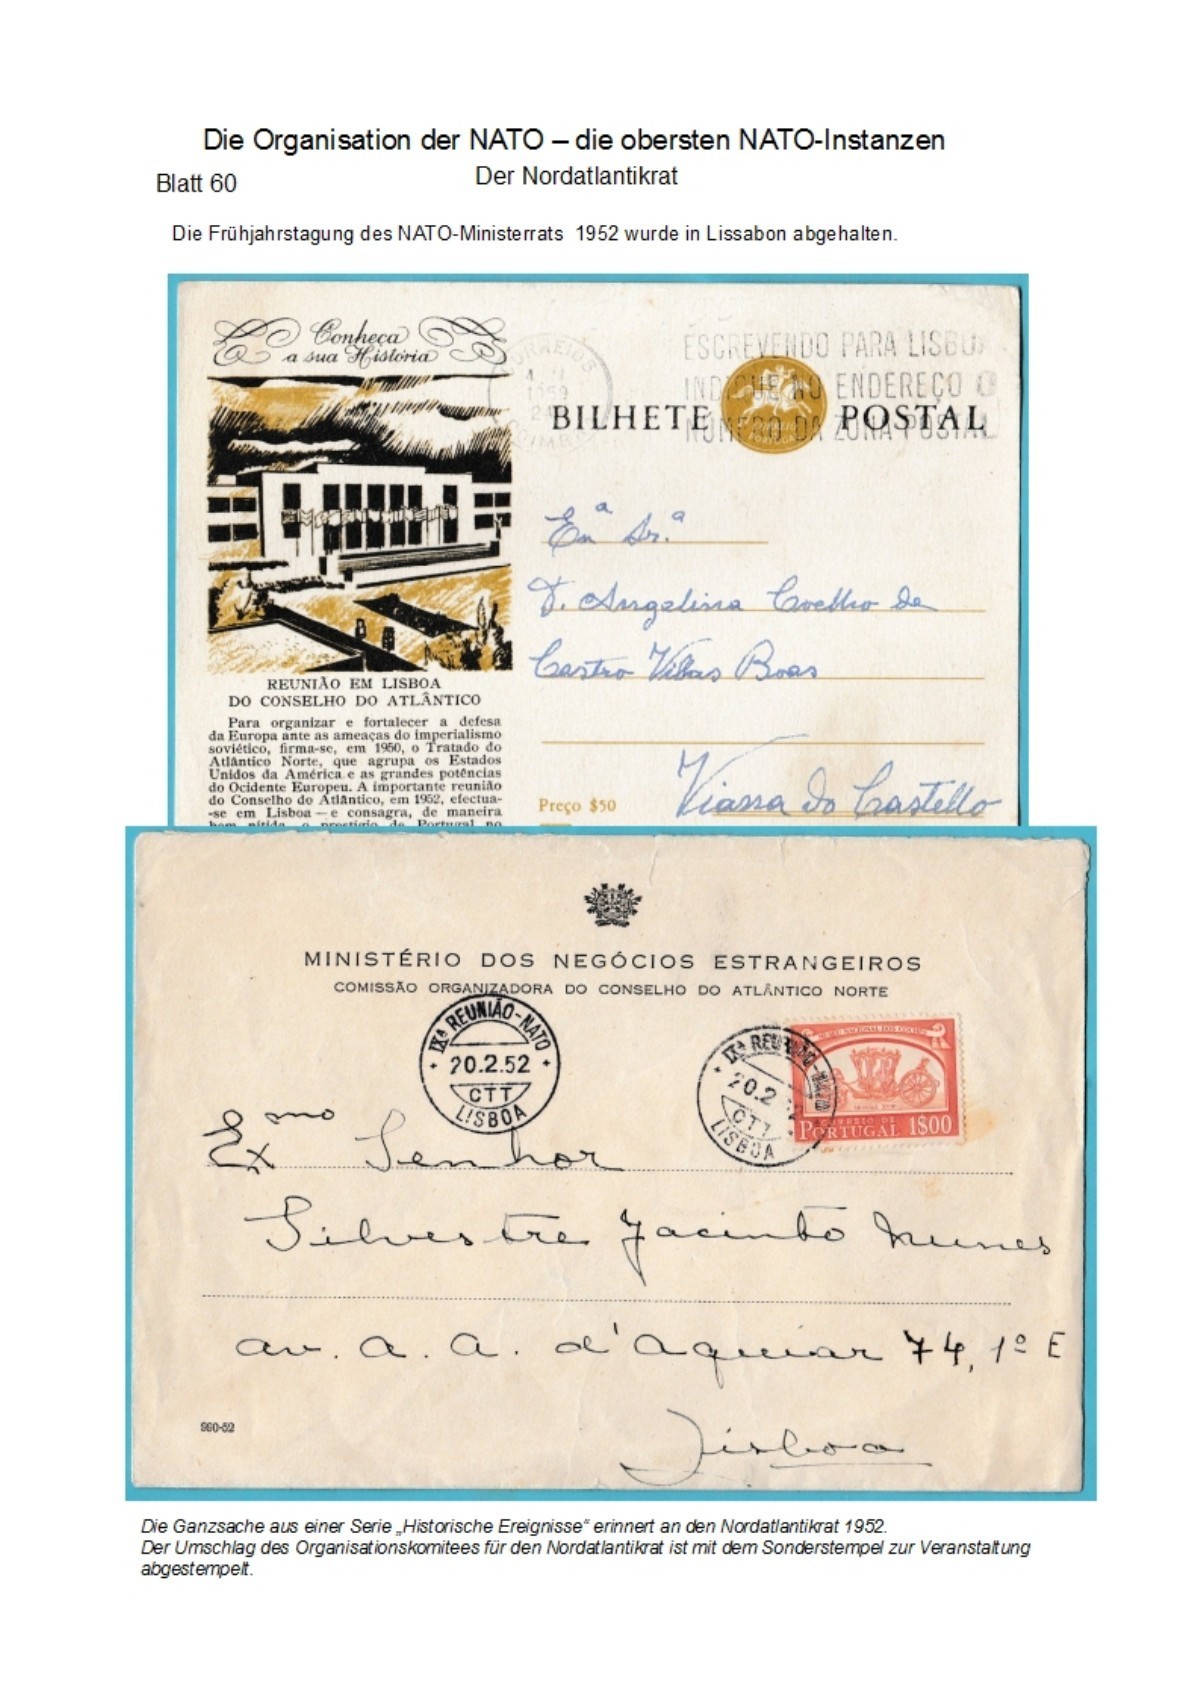 Die Organisation der NATO – die obersten NATO-Instanzen
Der Nordatlantikrat
Blatt 60
Die Frühjahrstagung des NATO-Ministerrats 1952 wurde in Lissabon abgehalten.
Conheça
a sua História
CORREIOS
1959
COIMB
ESCREVENDO PARA LISBO
INDIQUE NO ENDEREÇO O
NÚMERO DA ZONA POSTAL
BILHETE POSTAL
CORREIO
PORTUGAL
Exª Sr.ª
D. Angelina Coelho de
Castro Villas Boas
Vianna do Castello
Preço $50
REUNIÃO EM LISBOA
DO CONSELHO DO ATLÂNTICO
Para organizar e fortalecer a defesa
da Europa ante as ameaças do imperialismo
soviético, firma-se, em 1950, o Tratado do
Atlântico Norte, que agrupa os Estados
Unidos da América e as grandes potências
do Ocidente Europeu. A importante reunião
do Conselho do Atlântico, em 1952, efectua-
-se em Lisboa — e consagra, de maneira
bem nítida, o prestígio de Portugal no
MINISTÉRIO DOS NEGÓCIOS ESTRANGEIROS
COMISSÃO ORGANIZADORA DO CONSELHO DO ATLÂNTICO NORTE
IXª REUNIÃO-NATO
20.2.52
CTT
LISBOA
IXª REUNIÃO-NATO
20.2.52
CTT
LISBOA
MUSEU NACIONAL DOS COCHES
CORREIO DE
PORTUGAL 1$00
Exmo Senhor
Silvestre Jacinto Nunes
av. A. A. d'Aguiar 74, 1º E
Lisboa
990-52
Die Ganzsache aus einer Serie „Historische Ereignisse“ erinnert an den Nordatlantikrat 1952.
Der Umschlag des Organisationskomitees für den Nordatlantikrat ist mit dem Sonderstempel zur Veranstaltung
abgestempelt.